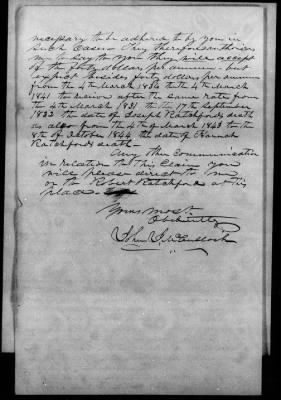 necessary to be adhered to by you in
such Cases - They therefore authorises
me to say to you they will accept
of the forty dollars per annum - but
expect besides forty dollars per annum
from the 4th March 1836 to the 4th March
1841 to receive after the same rate from
the 4th March 1831 to the 17th September
1832 the date of Joseph Ratchfords death
as also from the 4th of March 1843 to the
8th of October 1844 the date of Hannah
Ratchfords death -
Any other Communication
in relation to this Claim you
will please direct to me
or to Robert Ratchford at this
place
Yours most
Obediently
John